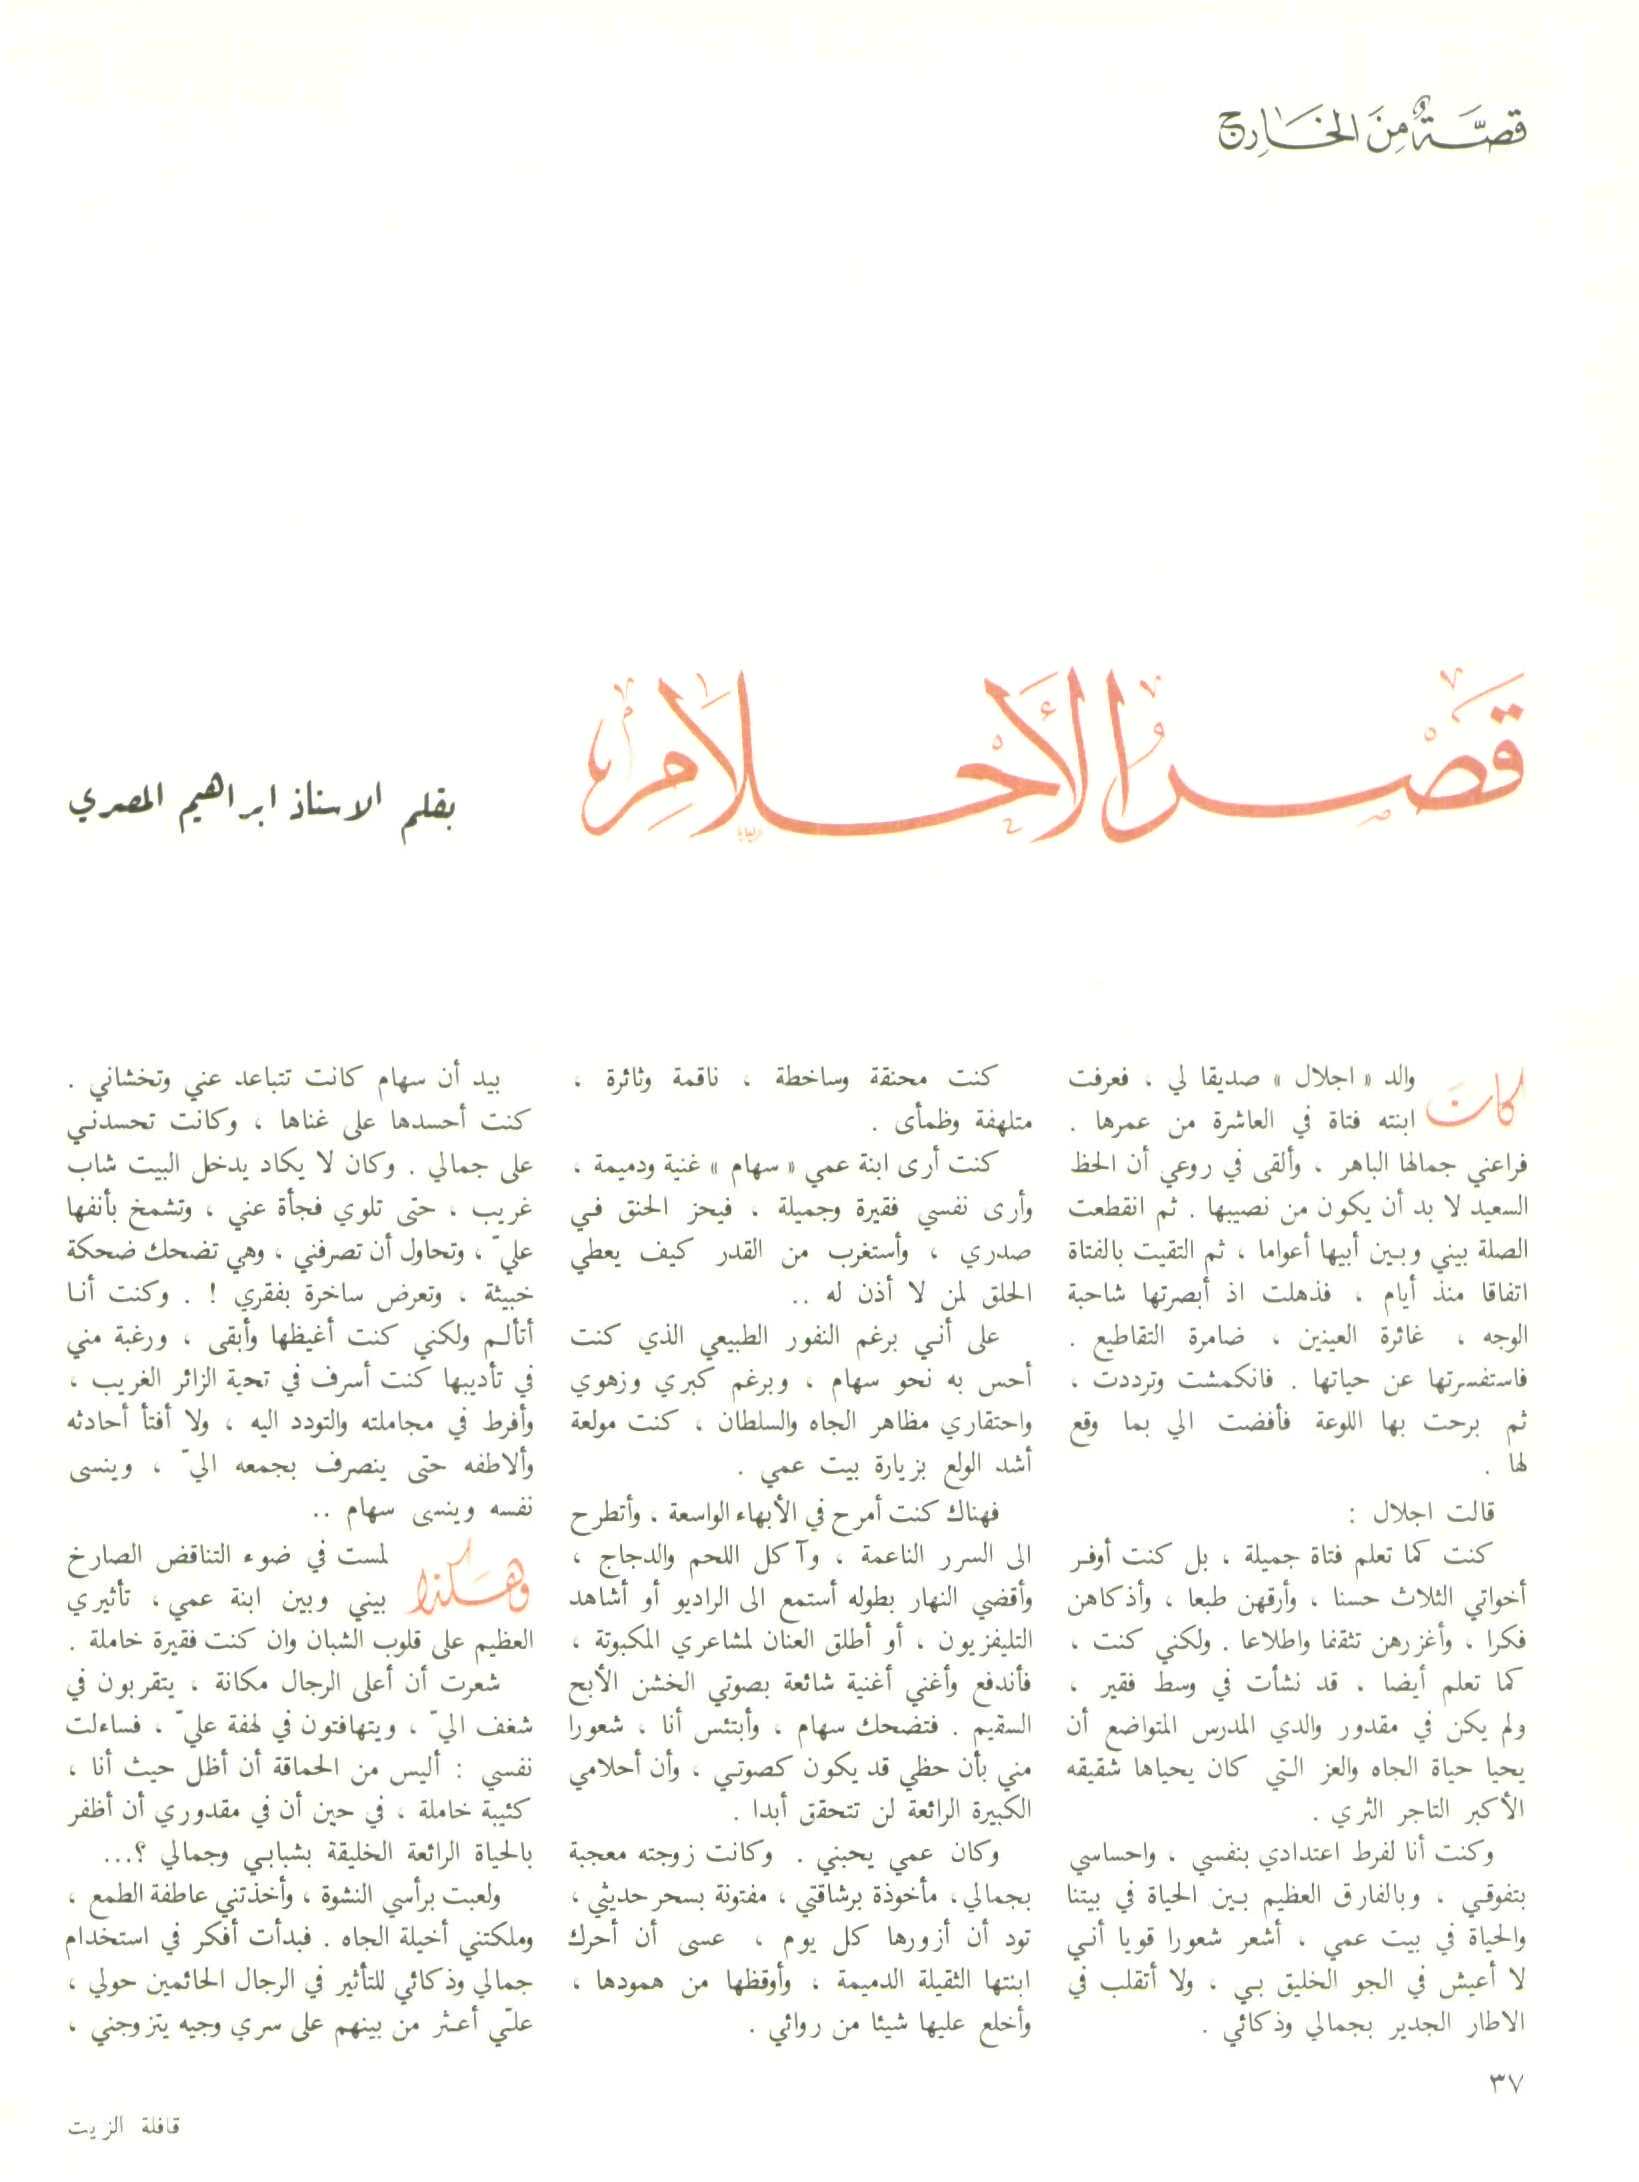 قصَّةٌ مِنَ الخَارِج
قَصْرُ الأَحْلَامِ
بقلم الاستاذ ابراهيم المصري
كانَ والد « اجلال » صديقا لي ، فعرفت
ابنته فتاة في العاشرة من عمرها .
فراعني جمالها الباهر ، وألقى في روعي أن الحظ
السعيد لا بد أن يكون من نصيبها . ثم انقطعت
الصلة بيني وبين أبيها أعواما ، ثم التقيت بالفتاة
اتفاقا منذ أيام ، فذهلت اذ أبصرتها شاحبة
الوجه ، غائرة العينين ، ضامرة التقاطيع .
فاستفسرتها عن حياتها . فانكمشت وترددت ،
ثم برحت بها اللوعة فأفضت الي بما وقع
لها .
قالت اجلال :
كنت كما تعلم فتاة جميلة ، بل كنت أوفر
أخواتي الثلاث حسنا ، وأرقهن طبعا ، وأذكاهن
فكرا ، وأغزرهن تثقفا واطلاعا . ولكني كنت ،
كما تعلم أيضا ، قد نشأت في وسط فقير ،
ولم يكن في مقدور والدي المدرس المتواضع أن
يحيا حياة الجاه والعز التي كان يحياها شقيقه
الأكبر التاجر الثري .
وكنت أنا لفرط اعتدادي بنفسي ، واحساسي
بتفوقي ، وبالفارق العظيم بين الحياة في بيتنا
والحياة في بيت عمي ، أشعر شعورا قويا أني
لا أعيش في الجو الخليق بي ، ولا أتقلب في
الاطار الجدير بجمالي وذكائي .
كنت محنقة وساخطة ، ناقمة وثائرة ،
متلهفة وظمأى .
كنت أرى ابنة عمي « سهام » غنية ودميمة ،
وأرى نفسي فقيرة وجميلة ، فيحز الحنق في
صدري ، وأستغرب من القدر كيف يعطي
الحلق لمن لا أذن له ..
على أني برغم النفور الطبيعي الذي كنت
أحس به نحو سهام ، وبرغم كبري وزهوي
واحتقاري مظاهر الجاه والسلطان ، كنت مولعة
أشد الولع بزيارة بيت عمي .
فهناك كنت أمرح في الأبهاء الواسعة ، وأتطرح
الى السرر الناعمة ، وآكل اللحم والدجاج ،
وأقضي النهار بطوله أستمع الى الراديو أو أشاهد
التليفزيون ، أو أطلق العنان لمشاعري المكبوتة ،
فأندفع وأغني أغنية شائعة بصوتي الخشن الأبح
السقيم . فتضحك سهام ، وأبتئس أنا ، شعورا
مني بأن حظي قد يكون كصوتي ، وأن أحلامي
الكبيرة الرائعة لن تتحقق أبدا .
وكان عمي يحبني . وكانت زوجته معجبة
بجمالي، مأخوذة برشاقتي ، مفتونة بسحر حديثي ،
تود أن أزورها كل يوم ، عسى أن أحرك
ابنتها الثقيلة الدميمة ، وأوقظها من همودها ،
وأخلع عليها شيئا من روائي .
بيد أن سهام كانت تتباعد عني وتخشاني .
كنت أحسدها على غناها ، وكانت تحسدني
على جمالي . وكان لا يكاد يدخل البيت شاب
غريب ، حتى تلوي فجأة عني ، وتشمخ بأنفها
عليّ ، وتحاول أن تصرفني ، وهي تضحك ضحكة
خبيثة ، وتعرض ساخرة بفقري ! . وكنت أنا
أتألم ولكني كنت أغيظها وأبقى ، ورغبة مني
في تأديبها كنت أسرف في تحية الزائر الغريب ،
وأفرط في مجاملته والتودد اليه ، ولا أفتأ أحادثه
وألاطفه حتى ينصرف بجمعه اليّ ، وينسى
نفسه وينسى سهام ..
وهَكذا لمست في ضوء التناقض الصارخ
بيني وبين ابنة عمي ، تأثيري
العظيم على قلوب الشبان وان كنت فقيرة خاملة .
شعرت أن أعلى الرجال مكانة ، يتقربون في
شغف اليّ ، ويتهافتون في لهفة عليّ ، فساءلت
نفسي : أليس من الحماقة أن أظل حيث أنا ،
كئيبة خاملة ، في حين أن في مقدوري أن أظفر
بالحياة الرائعة الخليقة بشبابي وجمالي ؟...
ولعبت برأسي النشوة ، وأخذتني عاطفة الطمع ،
وملكتني أخيلة الجاه . فبدأت أفكر في استخدام
جمالي وذكائي للتأثير في الرجال الحائمين حولي ،
علّي أعثر من بينهم على سري وجيه يتزوجني ،
٣٧
قافلة الزيت